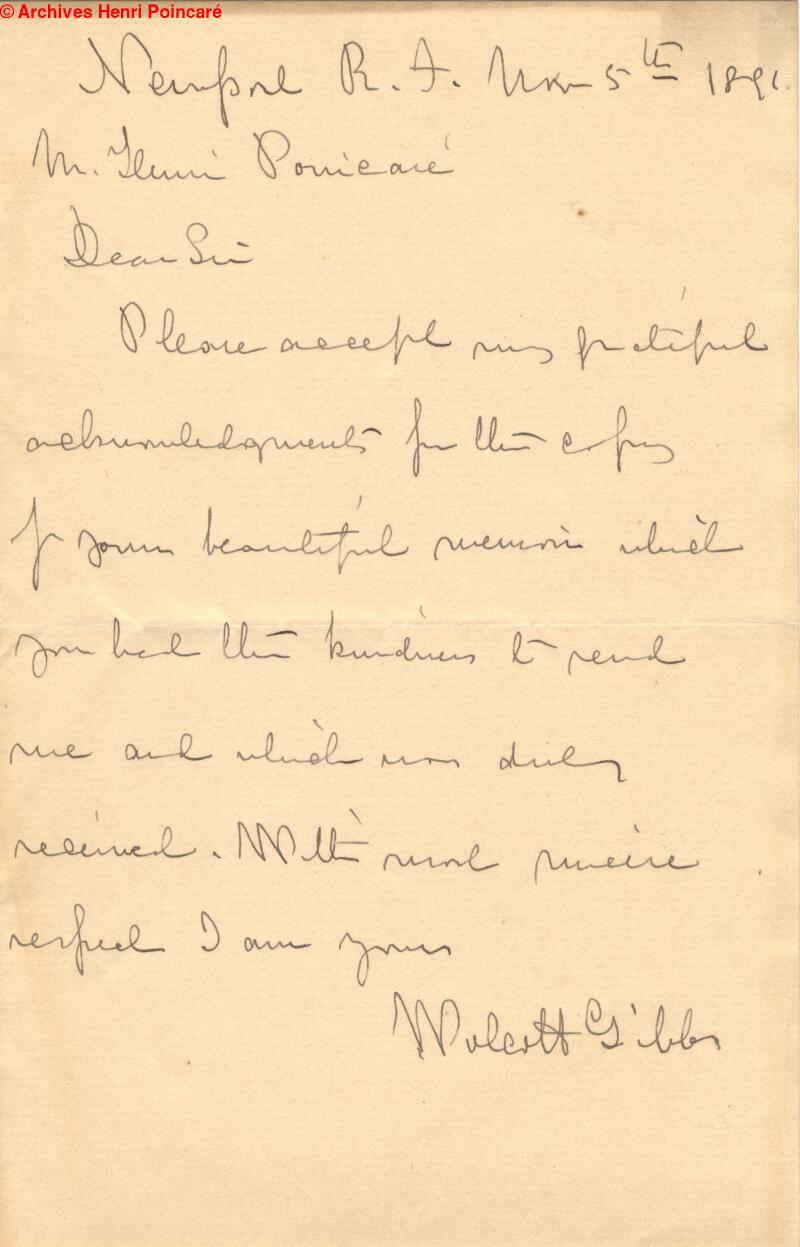 © Archives Henri Poincaré
Newport R. I. Nov 5th 1891.
M. Henri Poincaré
Dear Sir
Please accept my grateful
acknowledgments for the copy
of your beautiful memoir which
you had the kindness to send
me and which was duly
received. With most sincere
respect I am yours
Wolcott Gibbs